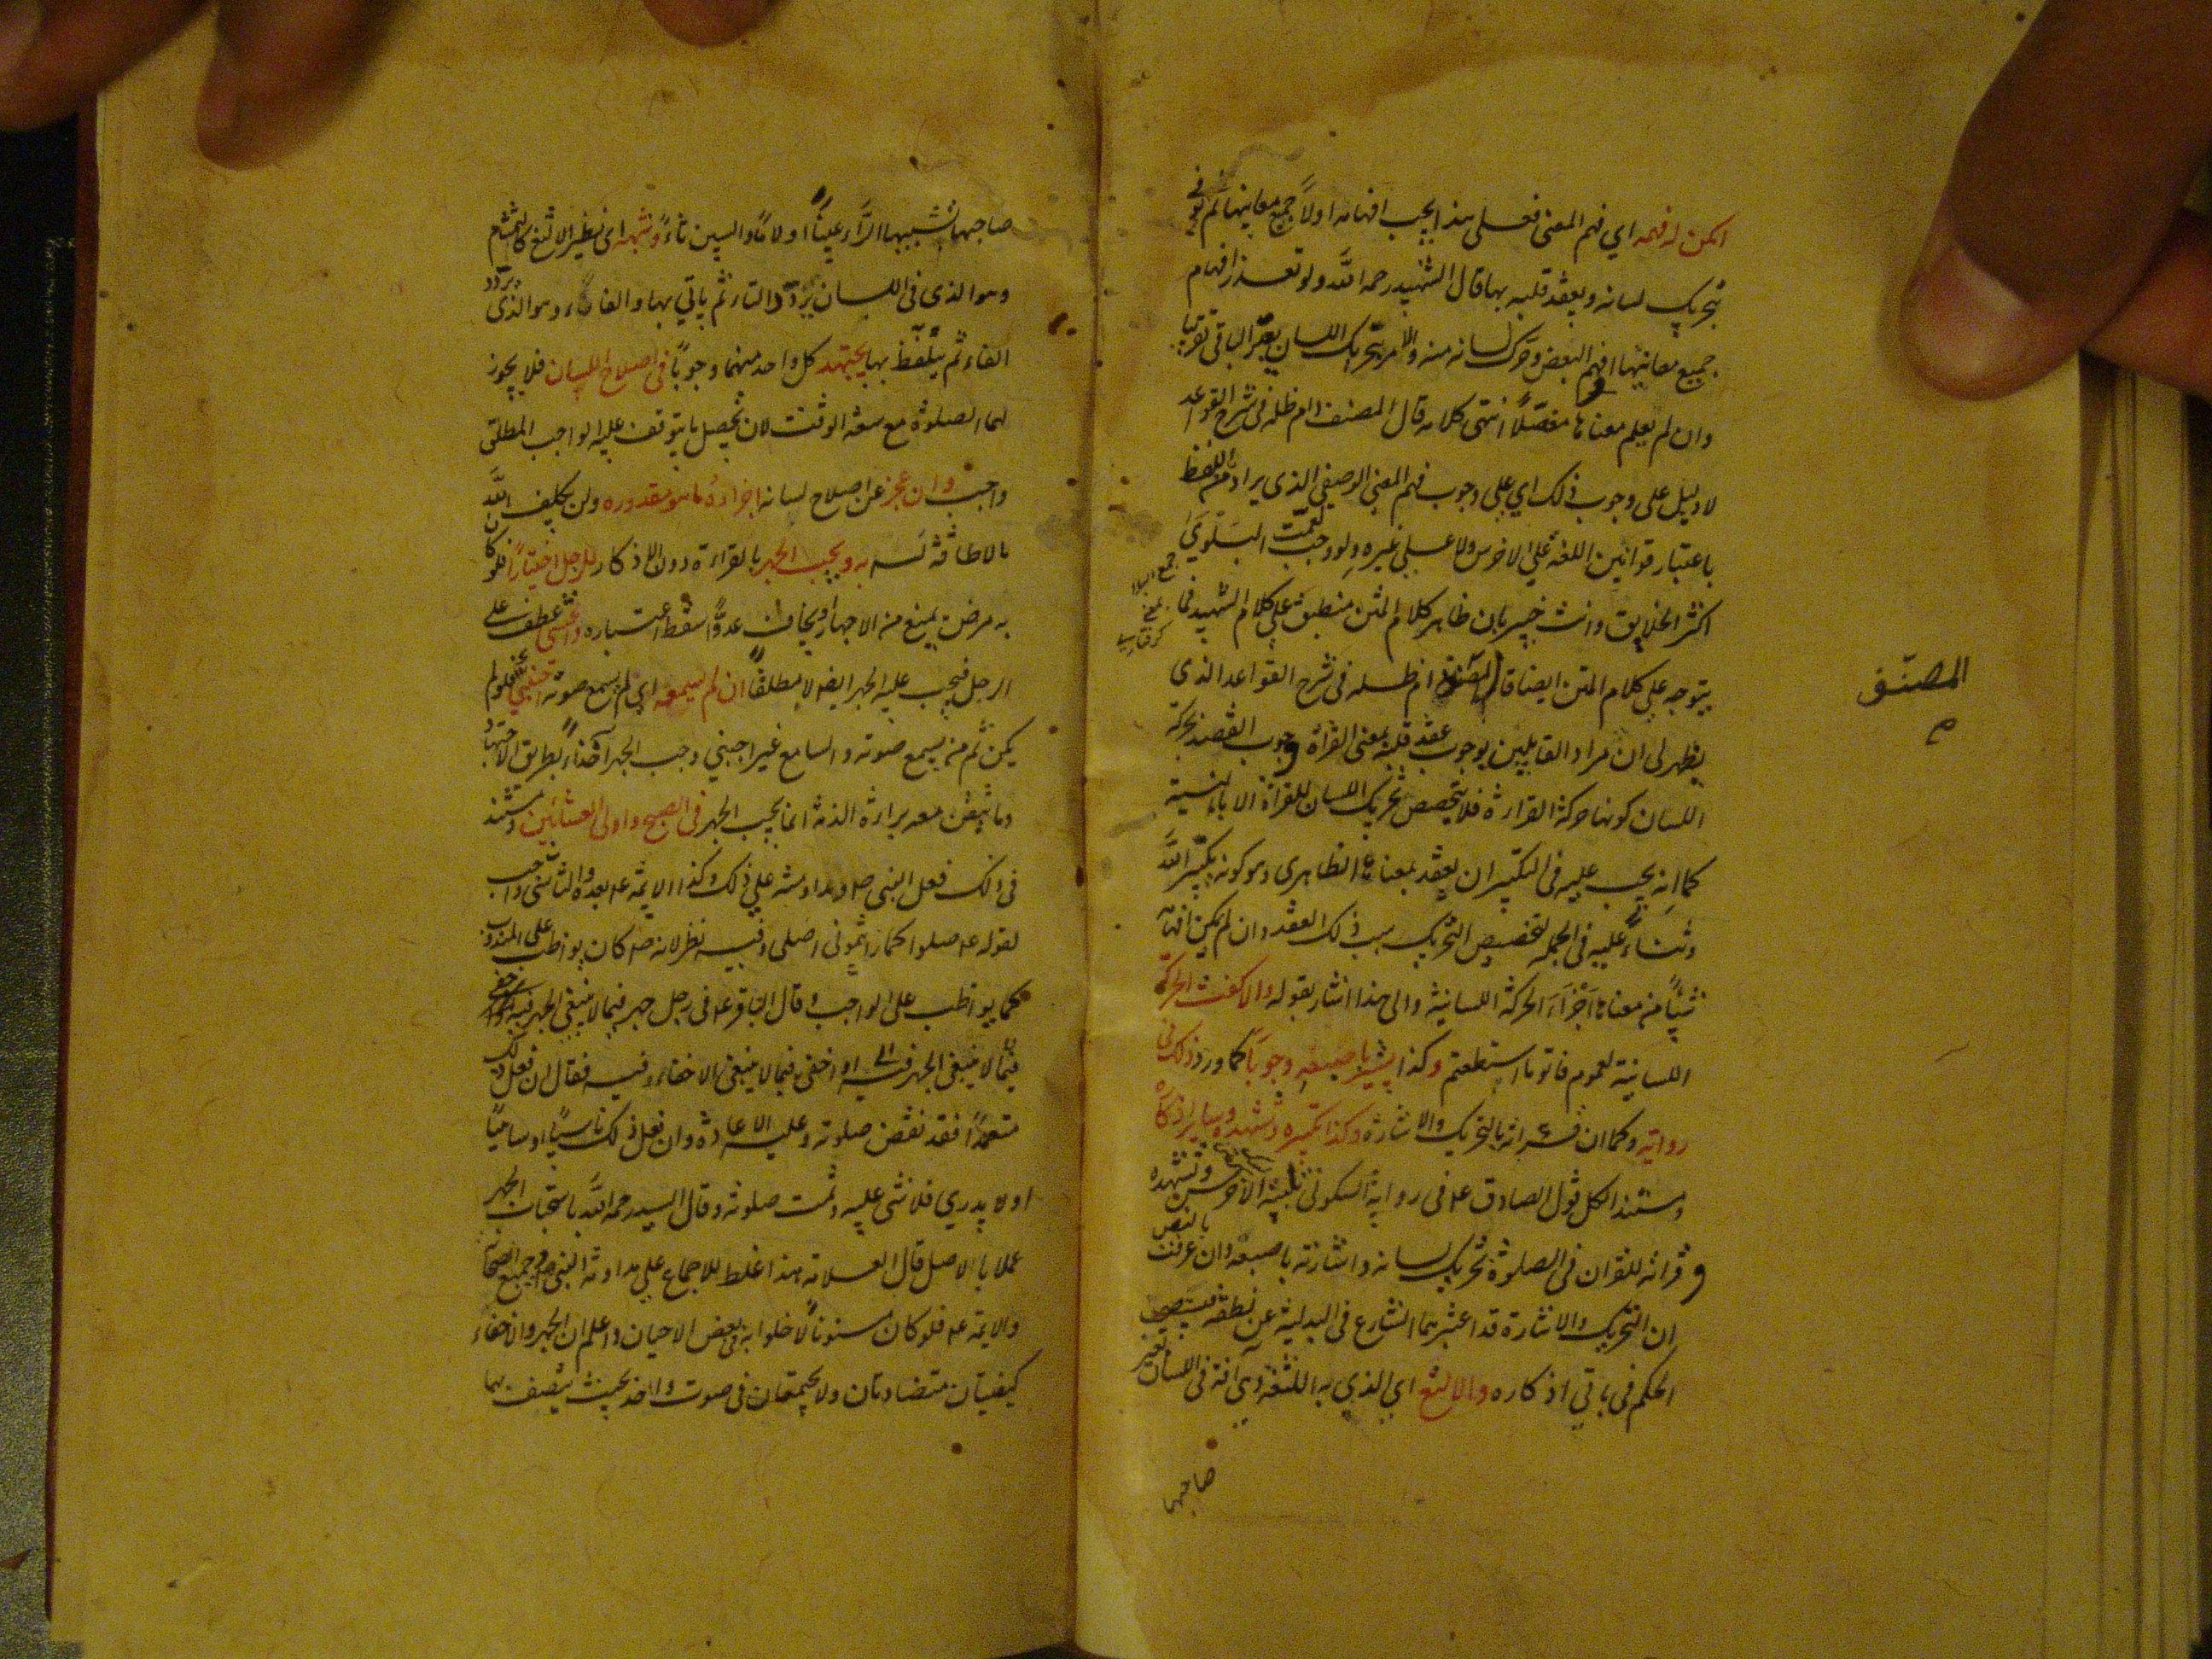 امكن له فهمه اي فهم المعنى فعلى هذا يجب افهامه اولاً جميع معانيها ثم يؤمر
بتحريك لسانه ويعقد قلبه بها قال الشهيد رحمه الله ولو تعذر افهام
جميع معانيها افهم البعض وحرك لسانه منه والامر بتحريك اللسان الباقي تقريبا
وان لم يعلم معناها مفصلاً انتهى كلامه قال المصنف دام ظله في شرح القواعد
لا دليل على وجوب ذلك اي على وجوب فهم المعنى الوصفي الذي يراد من اللفظ
باعتبار قوانين اللغة على الاخرس ولا على غيره ولو وجب لعمت البلوى
اكثر الخلايق وانت خبير بان ظاهر كلام المتن منطبق على كلام الشهيد فما
يتوجه على كلام المتن ايضا قال المصنف دام ظله في شرح القواعد الذي
يظهر لي ان مراد القايلين بوجوب عقد قلبه بمعنى القراة وجوب القصد بحركة
اللسان كونها حركة القراءة فلا يتخصص تحريك اللسان للقراة الا بالنية
كما انه يجب عليه في التكبير ان يعقد بمعناه الظاهري وهو كونه تكبير الله
وثناءً عليه في الجملة لتخصيص التحريك بسبب ذلك العقد وان لم يكن افهامه
شيئاً من معناها اجزاءَ الحركة اللسانية والى هذا اشار بقوله والا كفت الحركة
اللسانية لعموم فاتوا ما استطعتم وكذا يشير باصبعه وجوباً كما ورد ذلك في
روايته وكما ان قراءته بالتحريك والاشارة وكذا تكبيره وتشهده وساير اذكاره
ومستند الكل قول الصادق عم في رواية السكوني تلبية الاخرس وتشهده
وقراته للقران في الصلوة تحريك لسانه واشارته باصبعه وان عرفت بالنص
ان التحريك والاشارة قد اعتبرهما الشارع في البدلية عن نطقه
الحكم في باقي اذكاره والالثغ اي الذي به اللثغة وهي افة في اللسان تغير
صاحبها
المصنف
صاحبها بسببها الرَّاء غيناً او لاماً والسين ثاءً وشبهه اي نظير الالثغ كالتمتام
وهو الذي في اللسان يردد التاء ثم ياتي بها والفافاء وهو الذي يردد
الفاء ثم يتلفظ بها يجتهد كل واحد منهما وجوباً في اصلاح اللسان فلا يجوز
لهما الصلوة مع سعة الوقت لان تحصيل ما يتوقف عليه الواجب المطلق
واجب وان عجز عن اصلاح لسانه اجزاه ما هو مقدوره ولن يكلف الله
ما لا طاقة له به ويجب الجهر بالقراءة دون الاذكار للرجل اختياراً فلو كان
به مرض يمنع من الاجهار او يخاف عدوًّا سقط اعتباره والخنثى عطف على
الرجل فيجب عليه الجهر ايضا لا مطلقاً ان لم يسمعه اي لم يسمع صوته اجنبي فلو لم
يكن ثم من يسمع صوته والسامع غير اجنبي وجب الجهر اخذاً بطريق الاجتهاد
وما تيقن معه براءة الذمة انما يجب الجهر في الصبح واولى العشائين ومستند
في ذلك فعل النبي ص ومداومته على ذلك وكذا الائمة عم بعده والتأسي واجب
لقوله عم صلوا كما رايتموني اصلي وفيه نظر لانه ص كان يواظب على المندوب
كما يواظب على الواجب وقال الباقر عم في رجل جهر فيما لا ينبغي الجهر فيه
فيما لا ينبغي الجهر فيه او اخفى فيما لا ينبغي الاخفاء فيه فقال ان فعل ذلك
متعمداً فقد نقض صلوته وعليه الاعادة وان فعل ذلك ناسياً او ساهياً
او لا يدري فلا شي عليه وتمت صلوته وقال السيد رحمه الله باستحباب الجهر
عملا بالاصل قال العلامة هذا غلط للاجماع على مداومة النبي ص وجميع الصحابة
والائمة عم فلو كان مسنوناً لاخلوا به في بعض الاحيان واعلم ان الجهر والاخفاء
كيفيتان متضادتان ولا يجتمعان في صوت واحد بحيث يتصف بهما